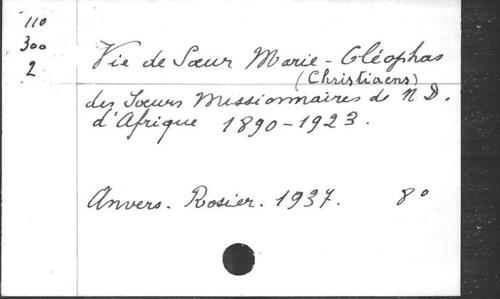 110
300
2
Vie de Sœur Marie-Cléophas
(Christiaens)
des Sœurs Missionnaires de N D.
d'Afrique 1890-1923.
Anvers. Rosier. 1937. 8°